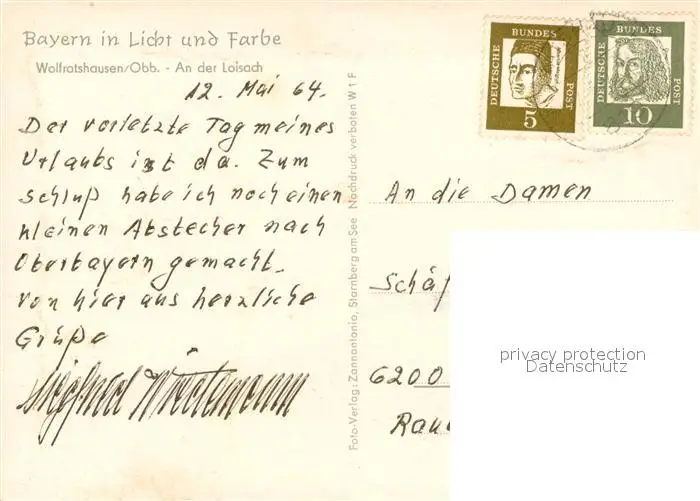 Bayern in Licht und Farbe
Wolfratshausen/Obb. - An der Loisach
12. Mai 64.
Der vorletzte Tag meines
Urlaubs ist da. Zum
Schluß habe ich noch einen
kleinen Abstecher nach
Oberbayern gemacht.
Von hier aus herzliche
Grüße
Siegfried
Foto-Verlag: Zannantonio, Starnberg am See Nachdruck verboten W 1 F
DEUTSCHE BUNDES POST
5
DEUTSCHE BUNDES POST
10
An die Damen
Schäf
6200
privacy protection
Datenschutz